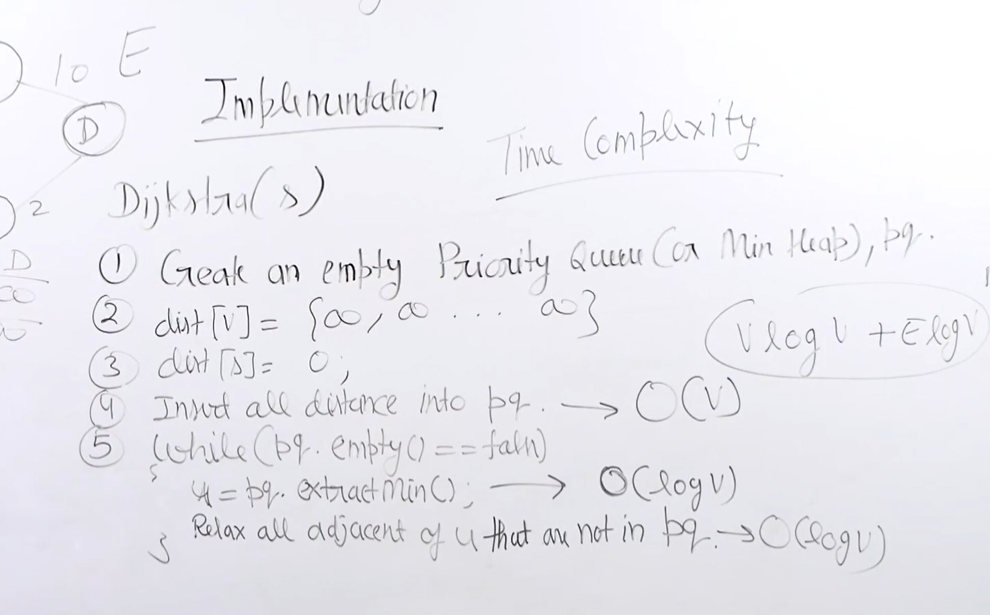 10 E
D
Implementation
Time Complexity
2
Dijkstra(s)
D
∞
① Create an empty Priority Queue (or Min Heap), pq.
② dist[V] = {∞, ∞ ... ∞}
V log V + E log V
③ dist[s] = 0;
④ Insert all distance into pq. → O(V)
⑤ While(pq.empty() == false)
{
u = pq.extractMin(); → O(log V)
Relax all adjacent of u that are not in pq. → O(log V)
}